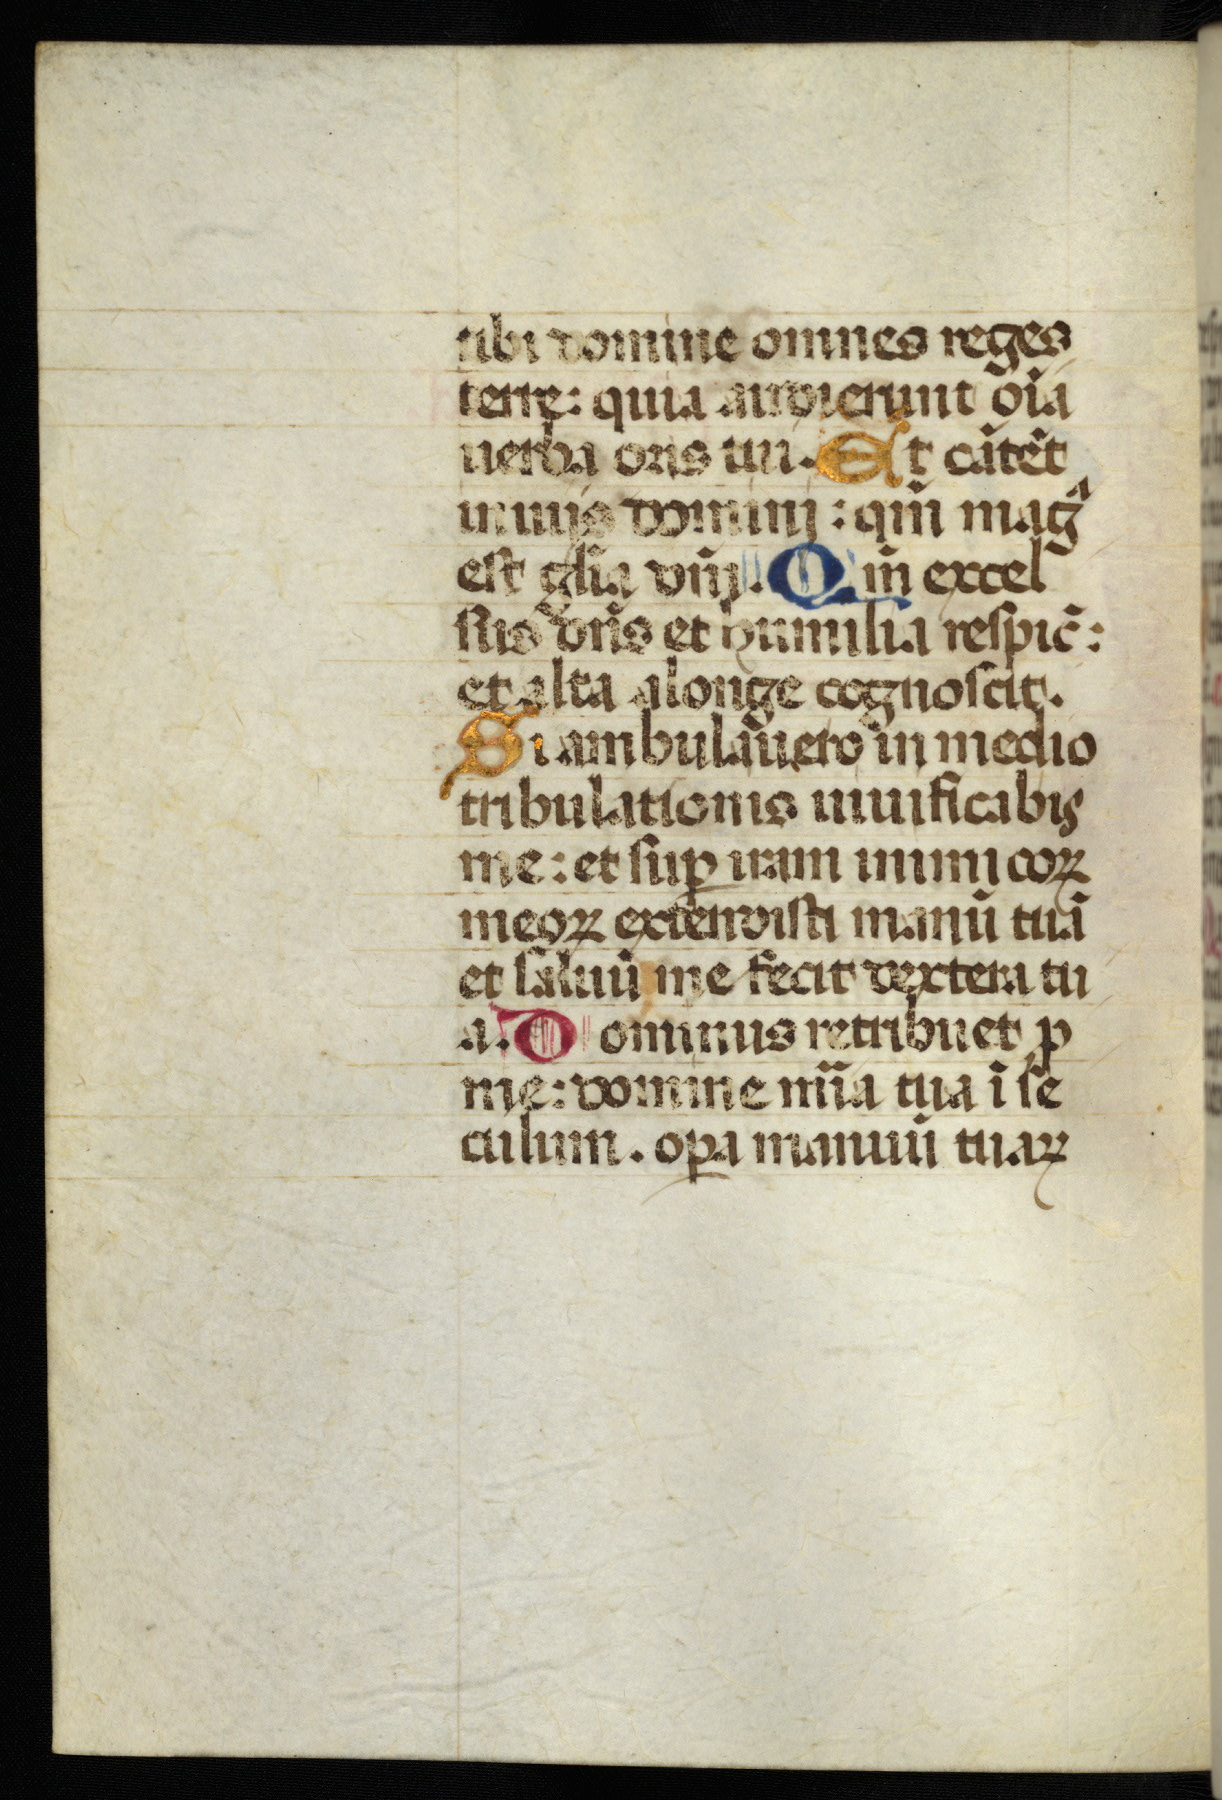 tibi domine omnes reges
terre: quia audierunt oīa
uerba oris tui. Et cātēt
in uijs domini: qm̄ magᵃ
est glīa dn̄j. Qm̄ excel
sus dn̄s et humilia respic̄:
et alta alonge cognoscit.
Si ambulau̅ero in medio
tribulationis uiuificabis
me: et suꝑ iram inimicoꝝ
meoꝝ extendisti manū tuā
et saluū me fecit dextera tu
a. Dominus retribuet ꝓ
me: domine mīa tua ī se
culum. oꝑa manuū tuaꝝ